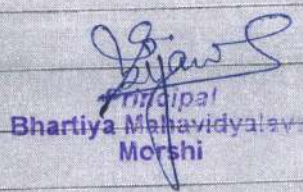 Principal
Bhartiya Mahavidyalaya
Morshi